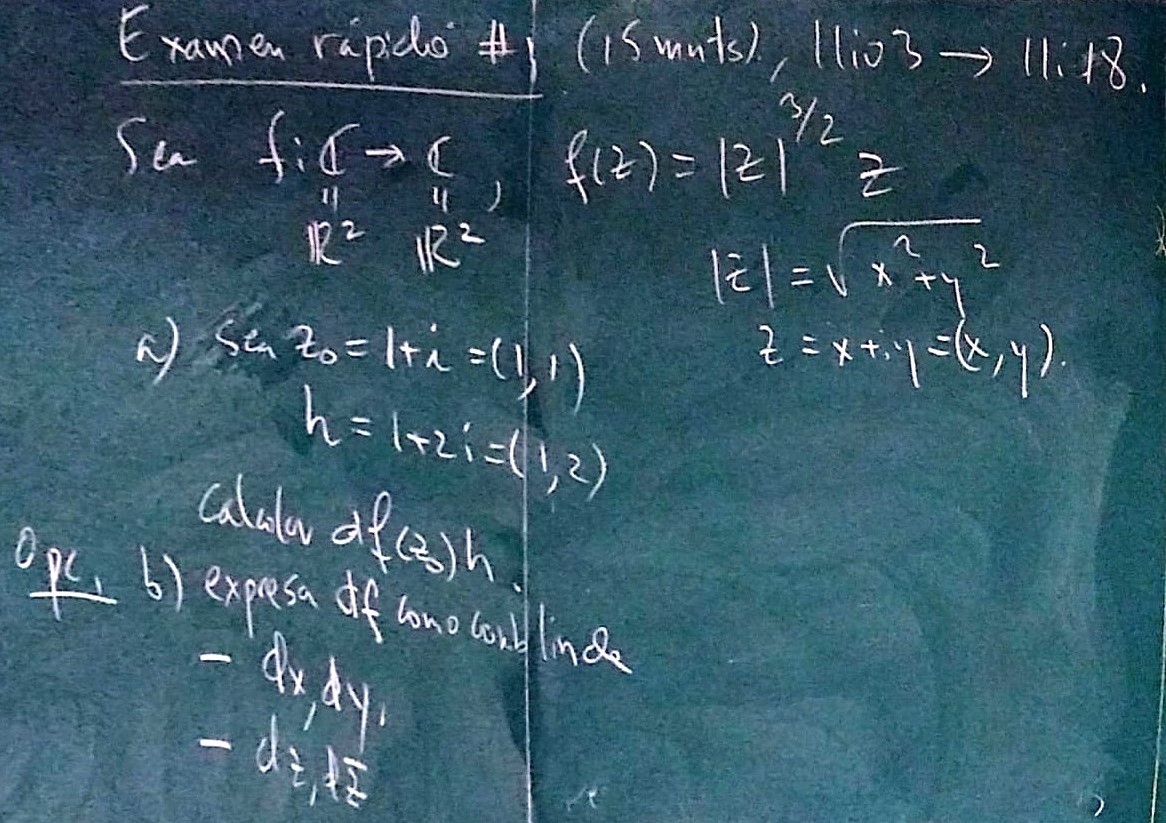 Examen rápido #1 (15 mnts), 11:03 → 11:18.
Sea f: ℂ → ℂ, f(z) = |z|^{3/2} z
" "
ℝ² ℝ²
|z| = √(x²+y²)
z = x+iy = (x,y).
a) Sea z₀ = 1+i = (1,1)
h = 1+2i = (1,2)
Calcular df(z₀)h.
Opc. b) expresa df como comb lin de
- dx, dy,
- dz, dz̄